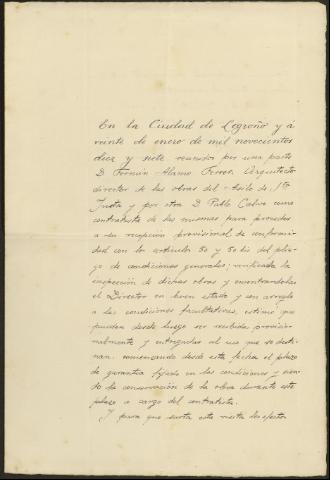 En la Ciudad de Logroño y á
veinte de enero de mil novecientos
diez y siete reunidos por una parte
D. Fermín Álamo Ferrer, Arquitecto
director de las obras del Asilo de Sta
Justa y por otra D. Pablo Calvo como
contratista de las mismas para proceder
a su recepción provisional de conformi-
dad con lo artículo 50 y 50 bis del plie-
go de condiciones generales; verificada la
inspección de dichas obras y encontrandolas
el Director en buen estado y con arreglo
a las condiciones facultativas, estimó que
pueden desde luego ser recibidas provisio-
nalmente y entregadas al uso que se desti-
nan, comenzando desde esta fecha el plazo
de garantía fijado en las condiciones y sien-
do la conservación de la obra durante este
plazo a cargo del contratista.
Y para que surta esta los efectos